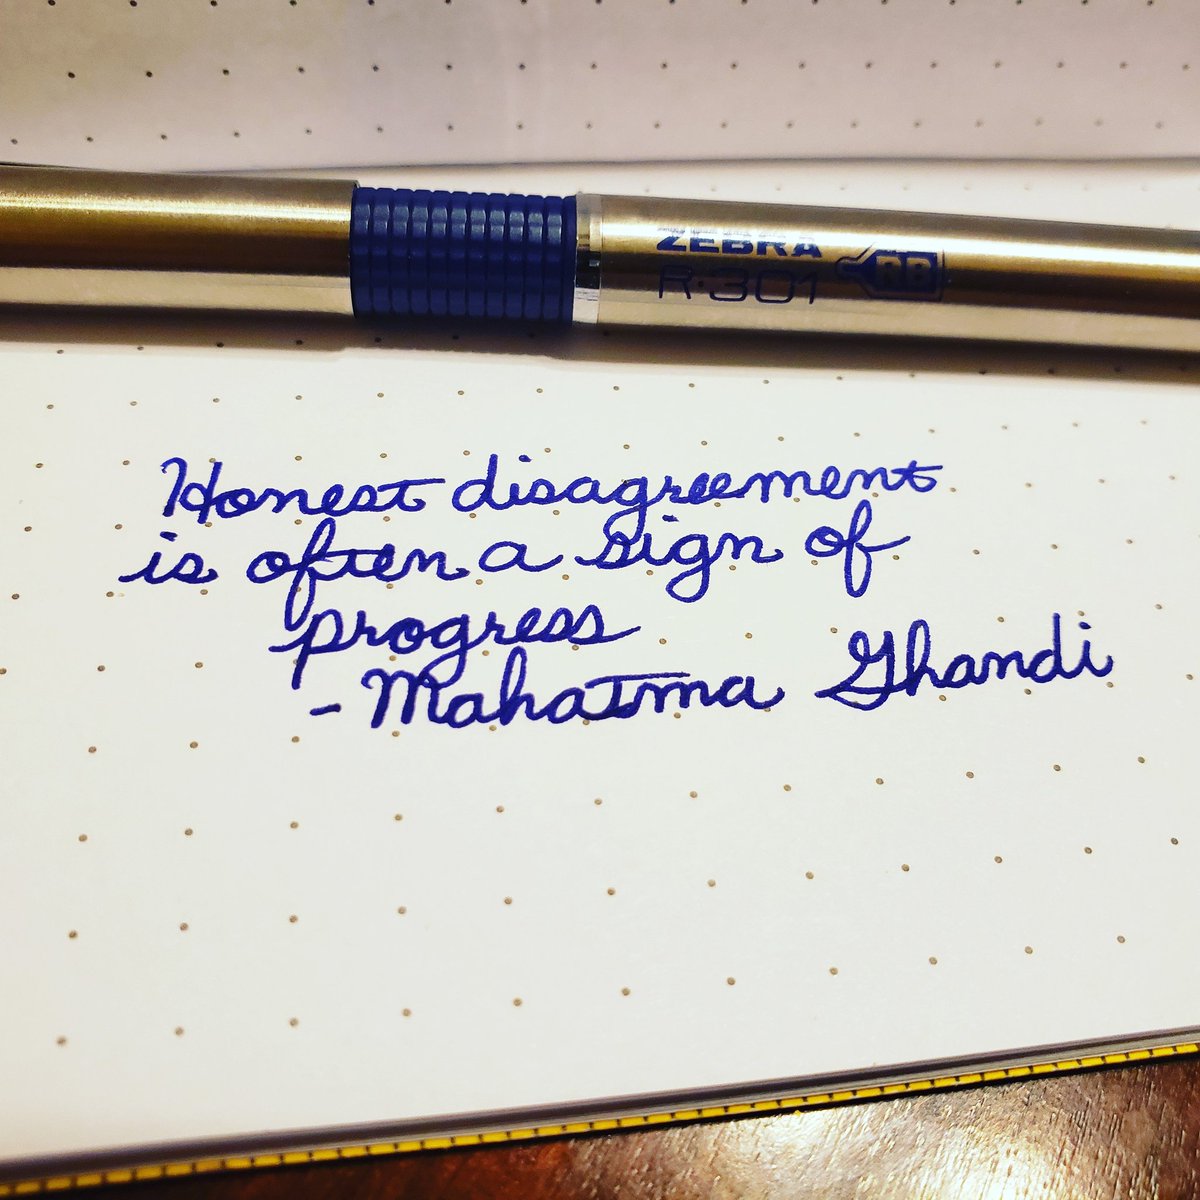 ZEBRA
R-301 RB
Honest disagreement
is often a sign of
progress
- Mahatma Ghandi